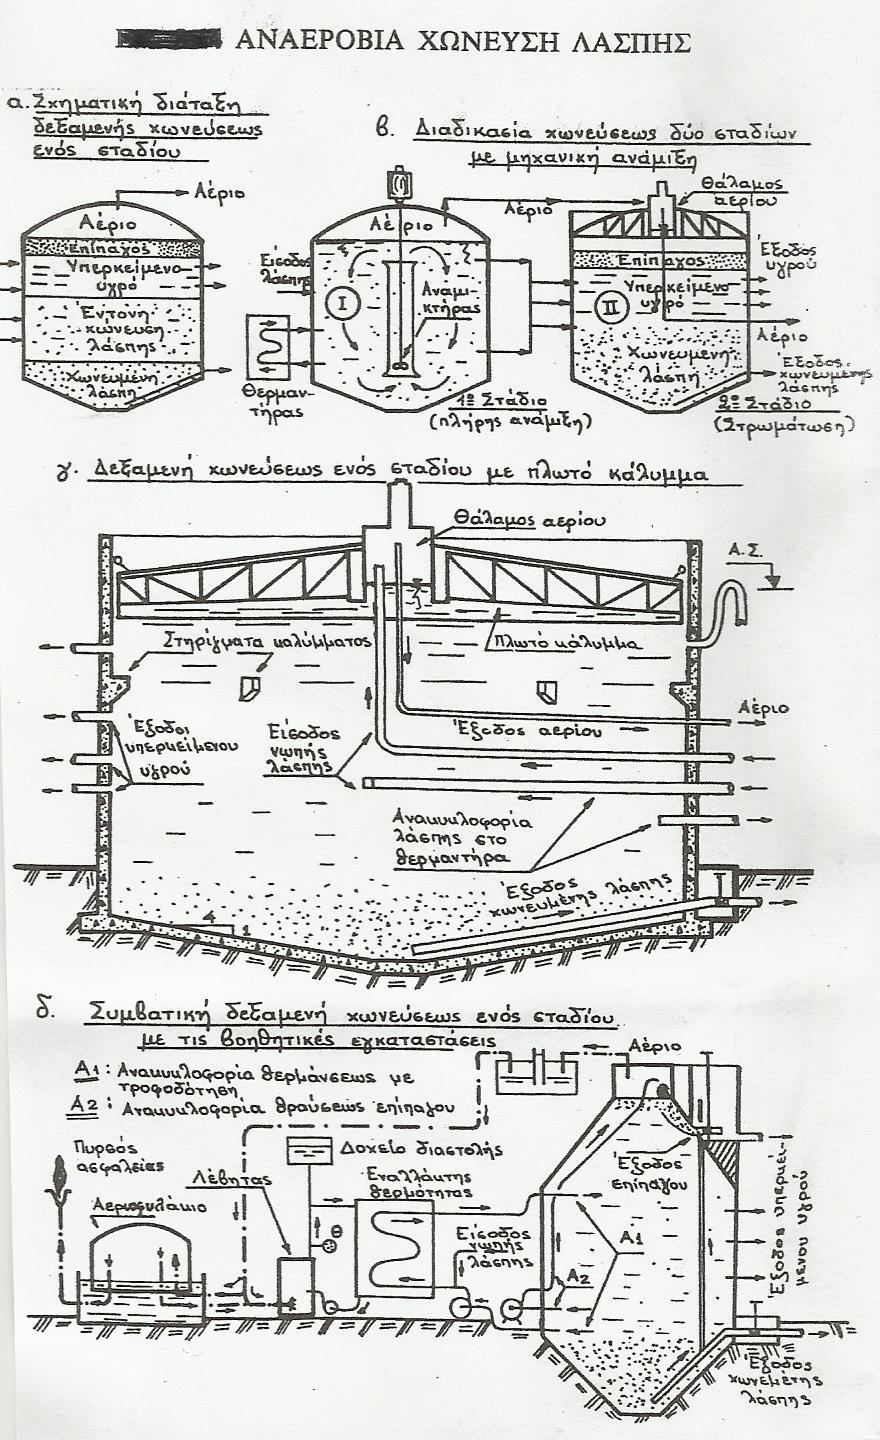 ΑΝΑΕΡΟΒΙΑ ΧΩΝΕΥΣΗ ΛΑΣΠΗΣ
α. Σχηματική διάταξη
δεξαμενής χωνεύσεως
ενός σταδίου
Αέριο
Αέριο
Επίπαγος
Υπερκείμενο
υγρό
Έντονη
χώνευση
λάσπης
Χωνευμένη
λάσπη
β. Διαδικασία χωνεύσεως δύο σταδίων
με μηχανική ανάμιξη
Αέριο
Αέριο
Θάλαμος
αερίου
Είσοδος
λάσπης
I
Αναμι-
κτήρας
Θερμαν-
τήρας
1ο Στάδιο
(πλήρης ανάμιξη)
Επίπαγος
Υπερκείμενο
υγρό
II
Χωνευμένη
λάσπη
Έξοδος
υγρού
Αέριο
Έξοδος
χωνευμένης
λάσπης
2ο Στάδιο
(Στρωμάτωση)
γ. Δεξαμενή χωνεύσεως ενός σταδίου με πλωτό κάλυμμα
Θάλαμος αερίου
Α.Σ.
Στηρίγματα καλύμματος
Πλωτό κάλυμμα
Αέριο
Έξοδοι
υπερκείμενου
υγρού
Είσοδος
νωπής
λάσπης
Έξοδος αερίου
Ανακυκλοφορία
λάσπης στο
θερμαντήρα
Έξοδος
χωνευμένης λάσπης
4
1
δ. Συμβατική δεξαμενή χωνεύσεως ενός σταδίου
με τις βοηθητικές εγκαταστάσεις
Α1: Ανακυκλοφορία θερμάνσεως με
τροφοδότηση
Α2: Ανακυκλοφορία θραύσεως επίπαγου
Αέριο
Πυρσός
ασφαλείας
Αεριοφυλάκιο
Λέβητας
Δοχείο διαστολής
Εναλλάκτης
θερμότητας
Θ
Είσοδος
νωπής
λάσπης
Α1
Α2
Έξοδος
επίπαγου
Έξοδος υπερκεί-
μενου υγρού
Έξοδος
χωνεμένης
λάσπης